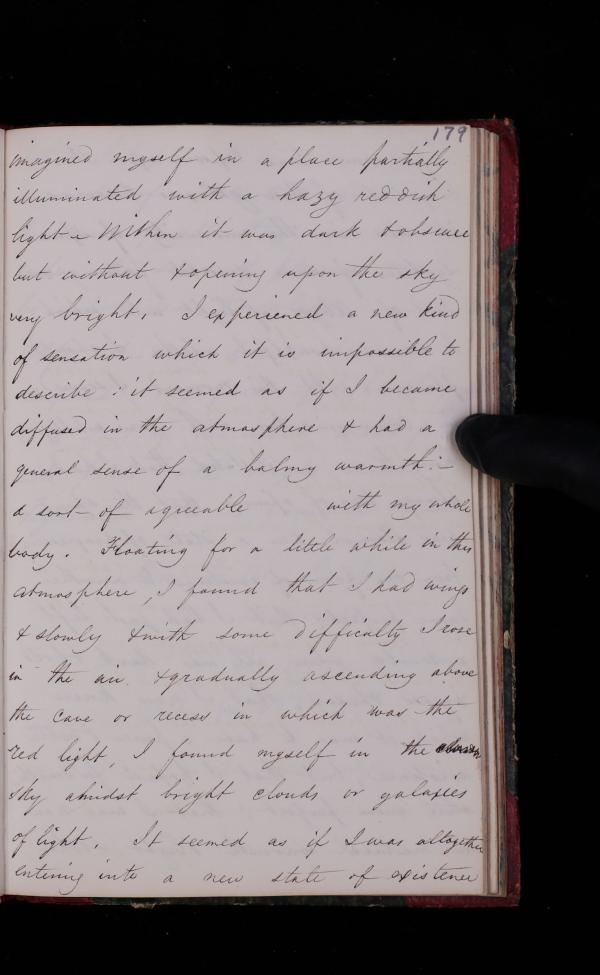 179
imagined myself in a place partially
illuminated with a hazy reddish
light - Within it was dark & obscure
but without & opening upon the sky
very bright. I experienced a new kind
of sensation which it is impossible to
describe : it seemed as if I became
diffused in the atmosphere & had a
general sense of a balmy warmth :-
a sort of agreeable with my whole
body. Floating for a little while in this
atmosphere, I found that I had wings
& slowly & with some difficulty I rose
in the air & gradually ascending above
the cave or recess in which was the
red light, I found myself in the
sky amidst bright clouds or galaxies
of light. It seemed as if I was altogether
entering into a new state of existence